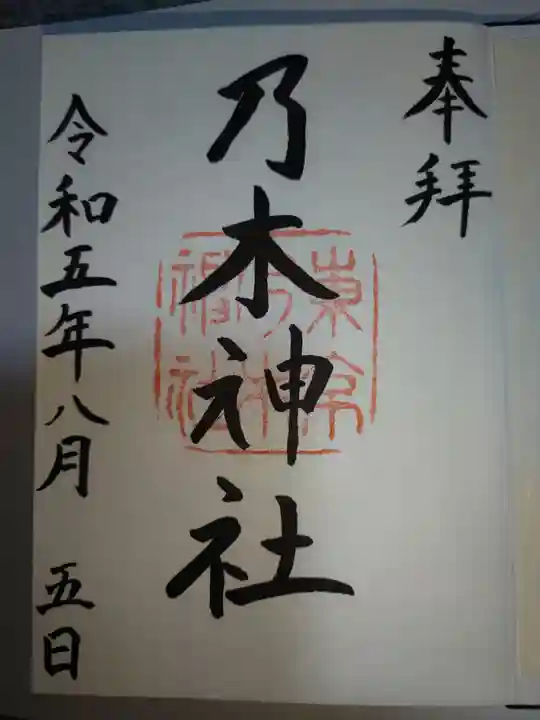 奉拝
乃木神社
令和五年八月 五日